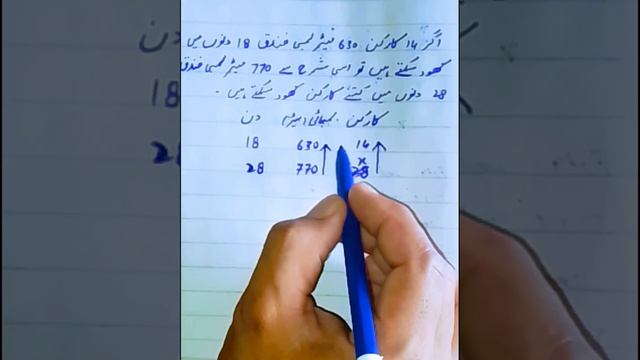 اگر 14 کارکن 630 میٹر لمبی خندق 18 دنوں میں
کھود سکتے ہیں تو اسی شرح سے 770 میٹر لمبی خندق
28 دنوں میں کتنے کارکن کھود سکتے ہیں۔
کارکن لمبائی (میٹر) دن
14 630 18
x 770 28